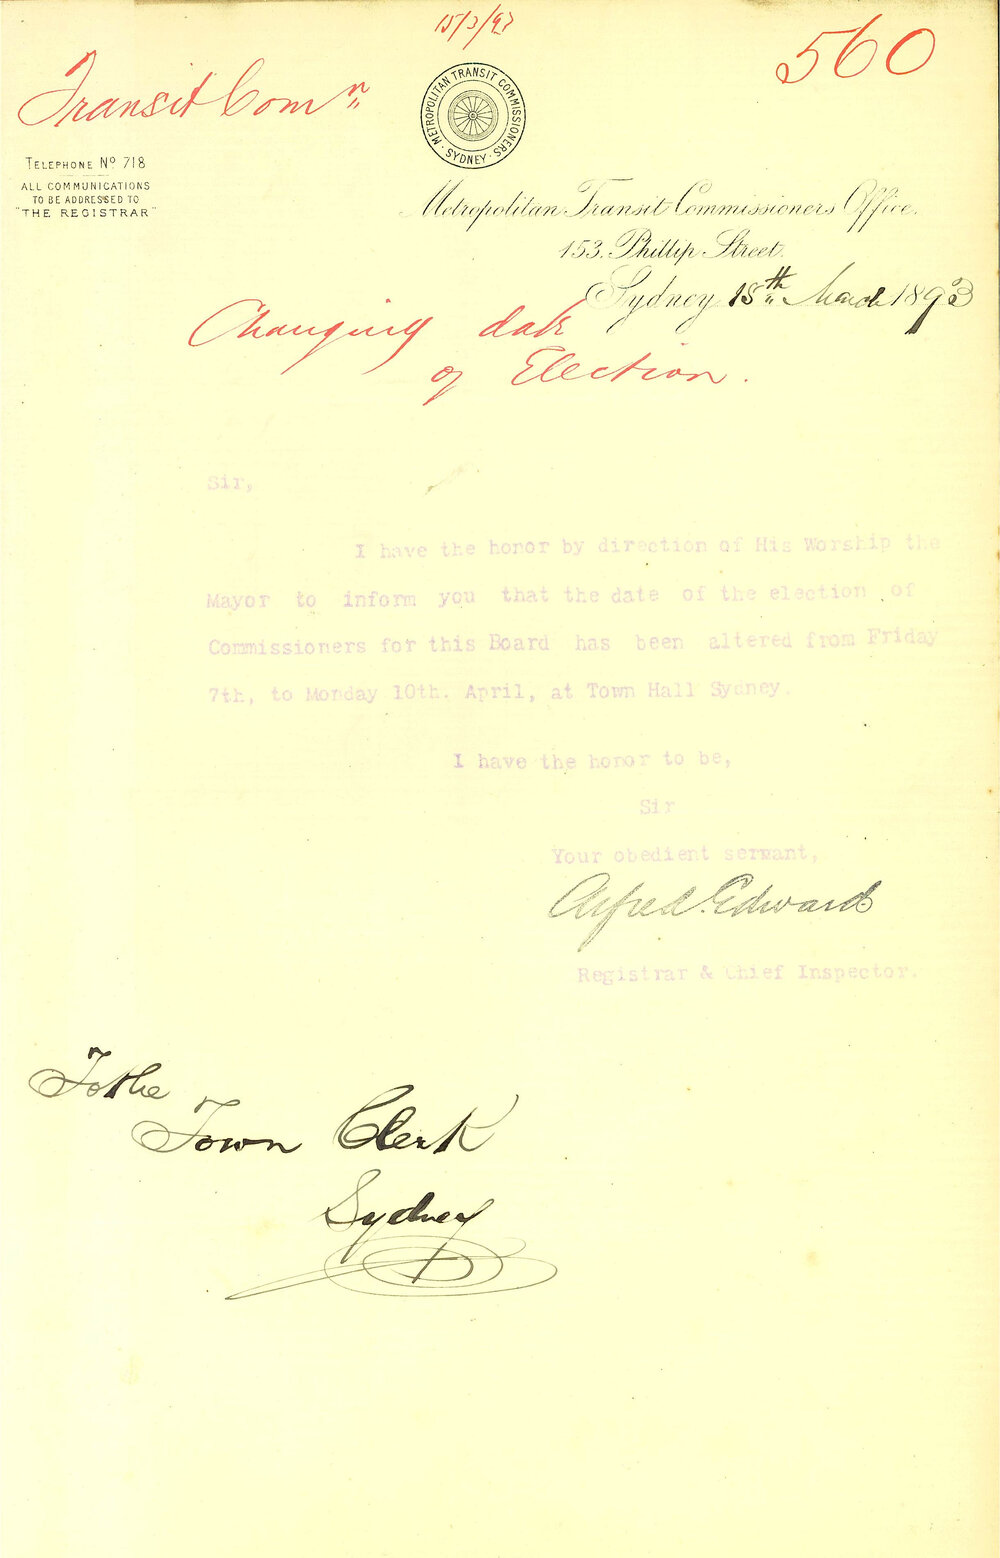 15/3/93
560
Transit Comn
METROPOLITAN TRANSIT COMMISSIONERS
· SYDNEY ·
TELEPHONE No 718
ALL COMMUNICATIONS
TO BE ADDRESSED TO
"THE REGISTRAR"
Metropolitan Transit Commissioners Office,
153, Phillip Street,
Sydney 15th March 1893
Changing date
of Election.
Sir,
I have the honor by direction of His Worship the
Mayor to inform you that the date of the election of
Commissioners for this Board has been altered from Friday
7th, to Monday 10th. April, at Town Hall Sydney.
I have the honor to be,
Sir
Your obedient servant,
Alfred Edward
Registrar & Chief Inspector.
To the
Town Clerk
Sydney